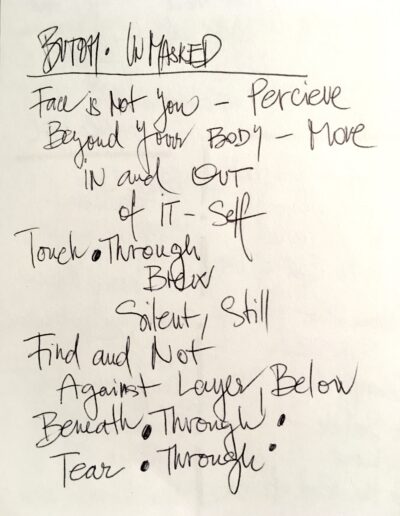 BUTOH. UNMASKED
Face is Not You - Percieve
Beyond Your BODY - Move
IN and OUT
of IT-Self
Touch • Through
Below
Silent, Still
Find and Not
Against Layer, Below
Beneath • Through •
Tear • Through •